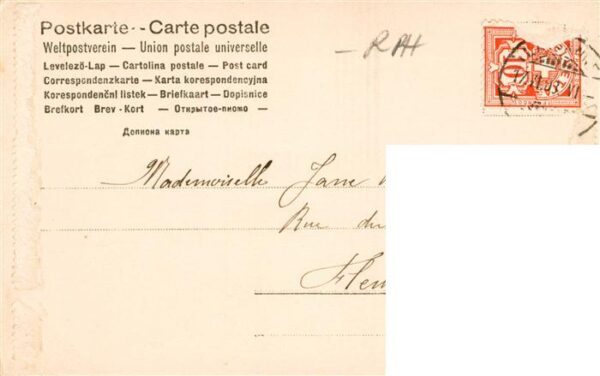 Postkarte - - Carte postale
Weltpostverein — Union postale universelle
Levelező-Lap — Cartolina postale — Post card
Correspondenzkarte — Karta korespondencyjna
Korespondenční listek — Briefkaart — Dopisnice
Brefkort Brev-Kort — Открытое-письмо —
Дописна карта
— RPH
10
Mademoiselle Jane
Rue du